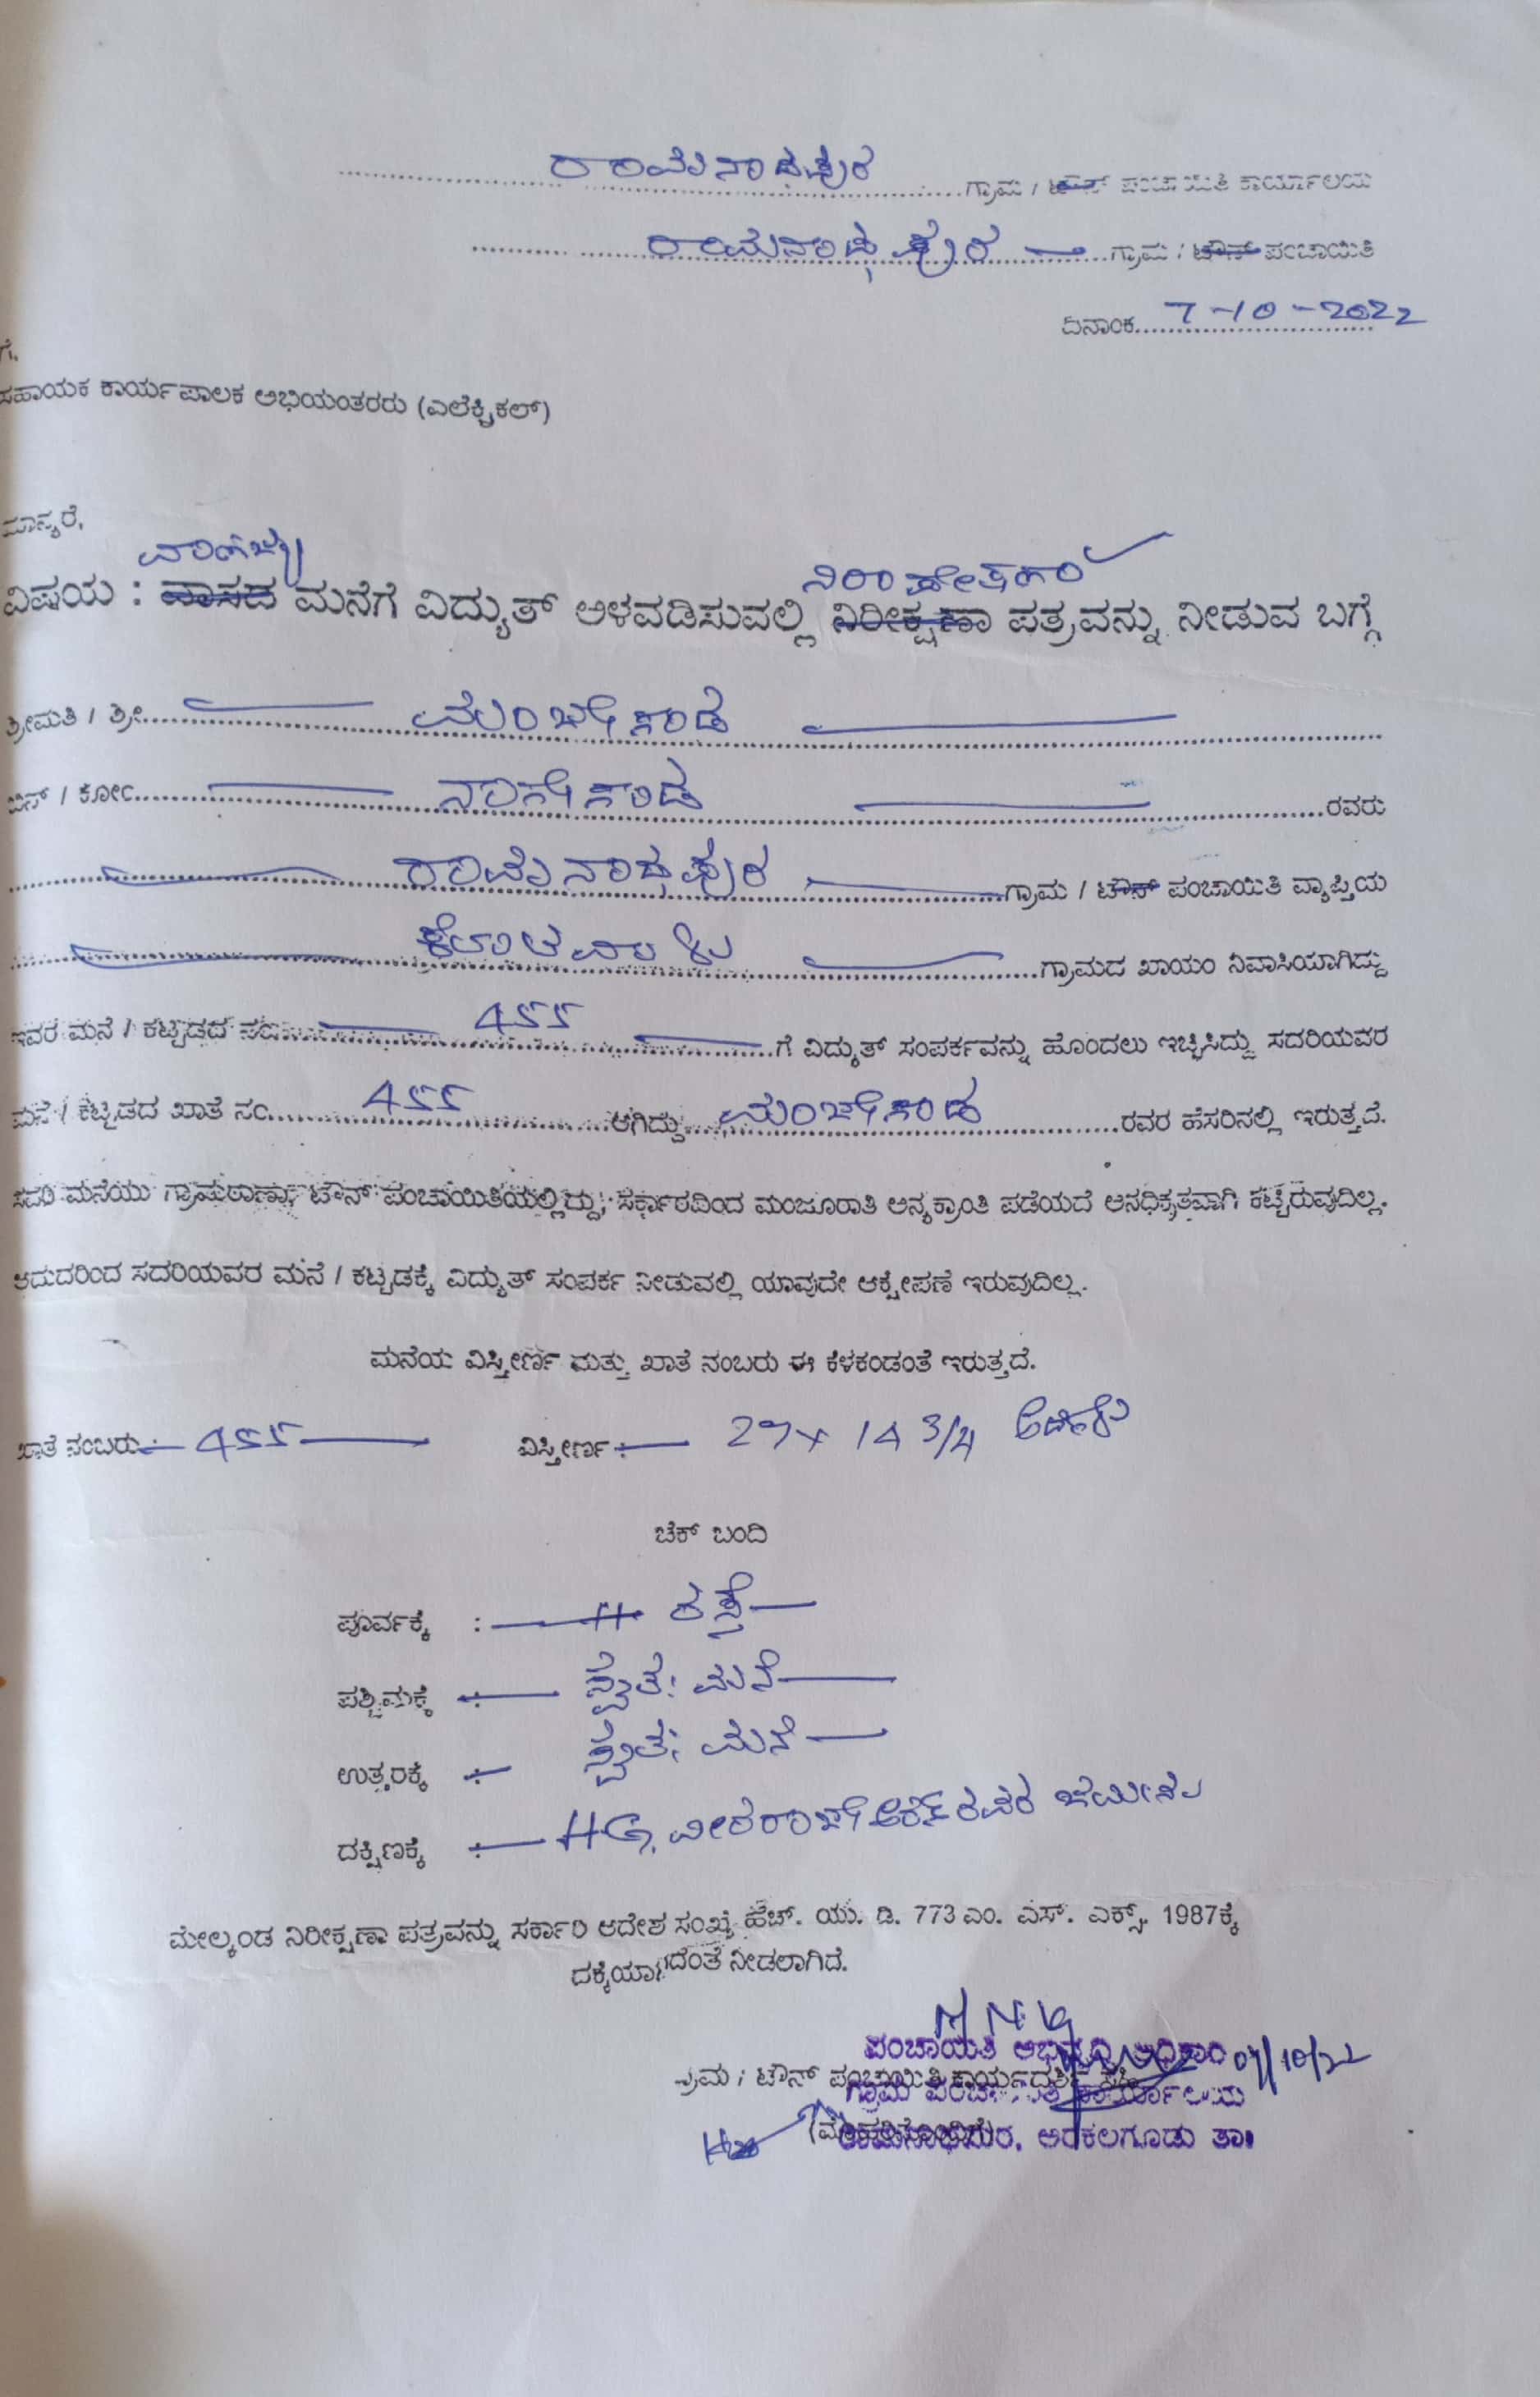 ರಾಮನಾಥಪುರ ಗ್ರಾಮ / ಟೌನ್ ಪಂಚಾಯಿತಿ ಕಾರ್ಯಾಲಯ
ರಾಮನಾಥಪುರ ಗ್ರಾಮ / ಟೌನ್ ಪಂಚಾಯಿತಿ
ದಿನಾಂಕ 7-10-2022
ಗೆ,
ಸಹಾಯಕ ಕಾರ್ಯಪಾಲಕ ಅಭಿಯಂತರರು (ಎಲೆಕ್ಟ್ರಿಕಲ್)
ಮಾನ್ಯರೆ,
ವಾಣಿಜ್ಯ ನಿರಾಪೇಕ್ಷಣಾ
ವಿಷಯ : ವಾಸದ ಮನೆಗೆ ವಿದ್ಯುತ್ ಅಳವಡಿಸುವಲ್ಲಿ ನಿರೀಕ್ಷಣಾ ಪತ್ರವನ್ನು ನೀಡುವ ಬಗ್ಗೆ
ಶ್ರೀಮತಿ / ಶ್ರೀ ಮಂಜೇಗೌಡ
ಬಿನ್ / ಕೋಂ ನಾಗೇಗೌಡ ರವರು
ರಾಮನಾಥಪುರ ಗ್ರಾಮ / ಟೌನ್ ಪಂಚಾಯಿತಿ ವ್ಯಾಪ್ತಿಯ
ಗ್ರಾಮದ ಖಾಯಂ ನಿವಾಸಿಯಾಗಿದ್ದು
ಇವರ ಮನೆ / ಕಟ್ಟಡದ ನಂ 455 ಗೆ ವಿದ್ಯುತ್ ಸಂಪರ್ಕವನ್ನು ಹೊಂದಲು ಇಚ್ಛಿಸಿದ್ದು ಸದರಿಯವರ
ಮನೆ / ಕಟ್ಟಡದ ಖಾತೆ ನಂ 455 ಆಗಿದ್ದು ಮಂಜೇಗೌಡ ರವರ ಹೆಸರಿನಲ್ಲಿ ಇರುತ್ತದೆ.
ಸದರಿ ಮನೆಯು ಗ್ರಾಮಠಾಣಾ, ಟೌನ್ ಪಂಚಾಯಿತಿಯಲ್ಲಿದ್ದು, ಸರ್ಕಾರದಿಂದ ಮಂಜೂರಾತಿ ಅನ್ಯಕ್ರಾಂತಿ ಪಡೆಯದೆ ಅನಧಿಕೃತವಾಗಿ ಕಟ್ಟಿರುವುದಿಲ್ಲ.
ಆದುದರಿಂದ ಸದರಿಯವರ ಮನೆ / ಕಟ್ಟಡಕ್ಕೆ ವಿದ್ಯುತ್ ಸಂಪರ್ಕ ನೀಡುವಲ್ಲಿ ಯಾವುದೇ ಆಕ್ಷೇಪಣೆ ಇರುವುದಿಲ್ಲ.
ಮನೆಯ ವಿಸ್ತೀರ್ಣ ಮತ್ತು ಖಾತೆ ನಂಬರು ಈ ಕೆಳಕಂಡಂತೆ ಇರುತ್ತದೆ.
ಖಾತೆ ನಂಬರು :- 455 ವಿಸ್ತೀರ್ಣ :- 29 x 14 3/4 ಅಡಿಗಳು
ಚೆಕ್ ಬಂದಿ
ಪೂರ್ವಕ್ಕೆ : ರಸ್ತೆ
ಪಶ್ಚಿಮಕ್ಕೆ : ಸ್ವತಃ ಮನೆ
ಉತ್ತರಕ್ಕೆ : ಸ್ವತಃ ಮನೆ
ದಕ್ಷಿಣಕ್ಕೆ : HG, ವೀರರಾಜೇ ಅರಸ್ ರವರ ಜಮೀನು
ಮೇಲ್ಕಂಡ ನಿರೀಕ್ಷಣಾ ಪತ್ರವನ್ನು ಸರ್ಕಾರಿ ಆದೇಶ ಸಂಖ್ಯೆ ಹೆಚ್. ಯು. ಡಿ. 773 ಎಂ. ಎಸ್. ಎಕ್ಸ್. 1987ಕ್ಕೆ
ದಕ್ಕೆಯಾಗದಂತೆ ನೀಡಲಾಗಿದೆ.
ಪಂಚಾಯಿತಿ ಅಭಿವೃದ್ಧಿ ಅಧಿಕಾರಿ 07/10/22
ಗ್ರಾಮ / ಟೌನ್ ಪಂಚಾಯಿತಿ ಕಾರ್ಯದರ್ಶಿ ಸಹಿ
ಗ್ರಾಮ ಪಂಚಾಯಿತಿ ಕಾರ್ಯಾಲಯ
(ಮೊಹರಿನೊಂದಿಗೆ)
ರಾಮನಾಥಪುರ, ಅರಕಲಗೂಡು ತಾ॥